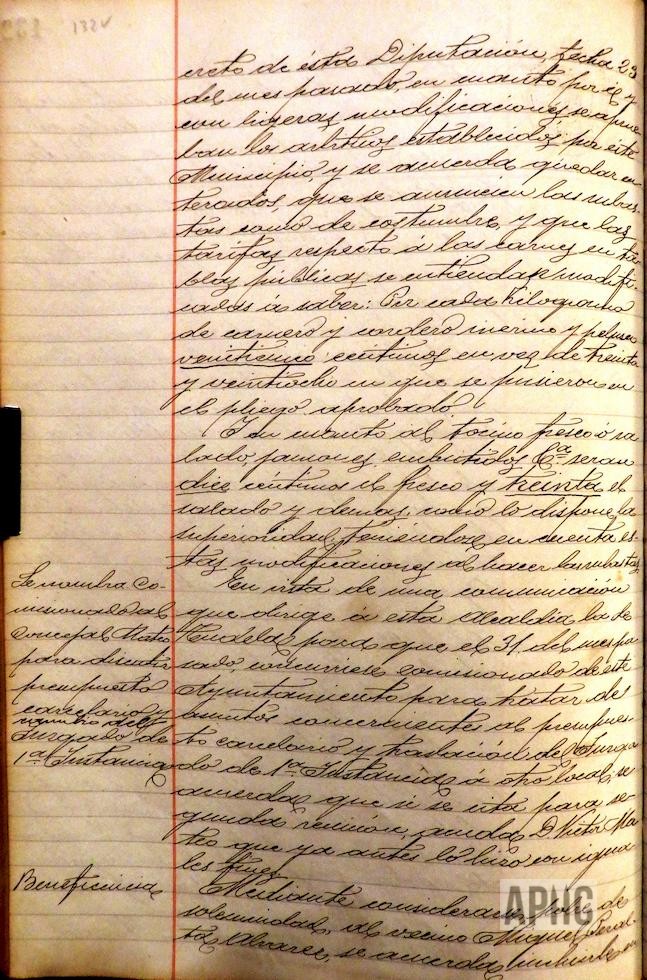 132v
creto de ésta Diputación, fecha 23
del mes pasado, en cuanto por él y
con ligeras modificaciones se aprue-
ban los arbitrios establecidos por éste
Municipio, y se acuerda quedar en-
terados, que se anuncien las subas-
tas como de costumbre, y que las
tarifas respecto á las carnes en ta-
blas públicas se entiendan modifi-
cadas á saber: Por cada kilogramo
de carnero y cordero merino y
veinticinco céntimos en vez de treinta
y veintiocho en que se pusieron en
el pliego aprobado.
Y en cuanto al tocino fresco ó sa-
lado, jamones, embutidos &a serán
diez céntimos el fresco y treinta el
salado y demas, como lo dispone la
superioridad, teniendose en cuenta es-
tas modificaciones al hacer las subastas.
Se nombra co-
misionado al
concejal Mateo
para discutir
presupuesto
carcelario y
Juzgado de
1ª Instancia
En vista de una comunicación
que dirige á esta Alcaldía la de
Tudela para que el 31 del mes pa-
sado, concurriese comisionado de este
Ayuntamiento para tratar de
asuntos concernientes al presupues-
to carcelario y traslación del Juzga-
do de 1ª Instancia á otro local, se
acuerda que si se cita para se-
gunda reunión, acuda D. Victor Ma-
teo que ya antes lo hizo con igua-
les fines.
Beneficencia
Mediante considerarse pobre de
solemnidad, al vecino Miguel Peral-
ta Alvarez, se acuerda incluirle en
APNG